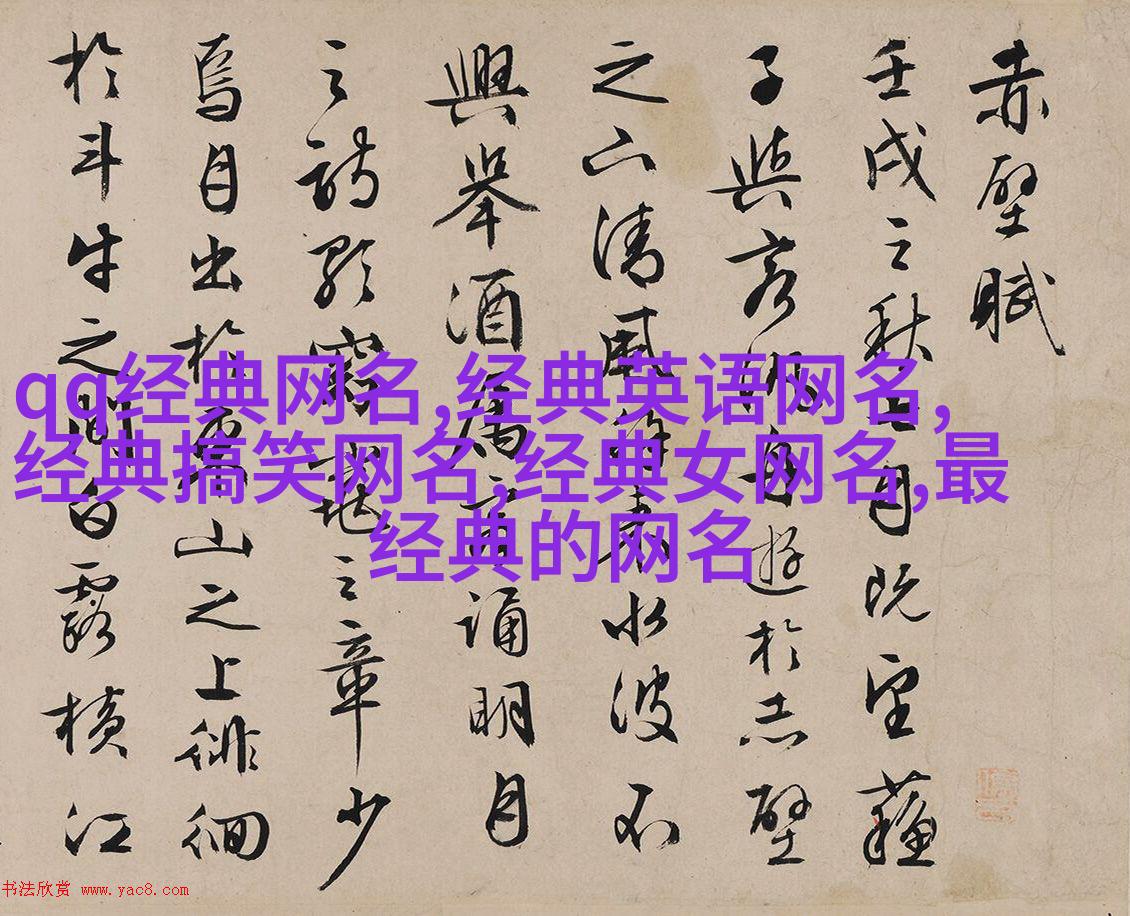 赤壁賦
壬戌之秋七月既望蘇
子與客泛舟遊於赤壁
之下清風徐來水波不
興舉酒屬客誦明月
之詩歌窈窕之章少
焉月出於東山之上徘徊
於斗牛之間白露橫江
qq经典网名,经典英语网名,
经典搞笑网名,经典女网名,最
经典的网名
书法欣赏 www.yac8.com